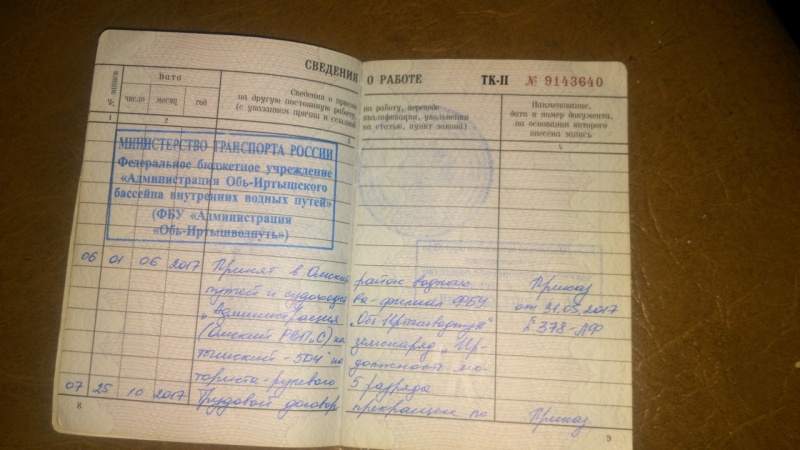 СВЕДЕНИЯ О РАБОТЕ ТК-II № 9143640
№ записи
Дата
число месяц год
Сведения о приеме
на другую постоянную работу,
(с указанием причин и ссылкой
на работу, переводе
квалификации, увольнении
на статью, пункт закона)
Наименование,
дата и номер документа,
на основании которого
внесена запись
1 2 3 4
МИНИСТЕРСТВО ТРАНСПОРТА РОССИИ
Федеральное бюджетное учреждение
«Администрация Обь-Иртышского
бассейна внутренних водных путей»
(ФБУ «Администрация
«Обь-Иртышводпуть»)
06 01 06 2017 Принят в Омский район водных Приказ
путей и судоходст ва-филиал ФБУ от 31.05.2017
"Администрация "Обь-Иртышводпуть" № 378-ЛФ
(Омский РВПиС) на земснаряд "Ир-
тышский-504" на должность мо-
ториста-рулевого 5 разряда
07 25 10 2017 Трудовой договор прекращен по Приказ
8
9